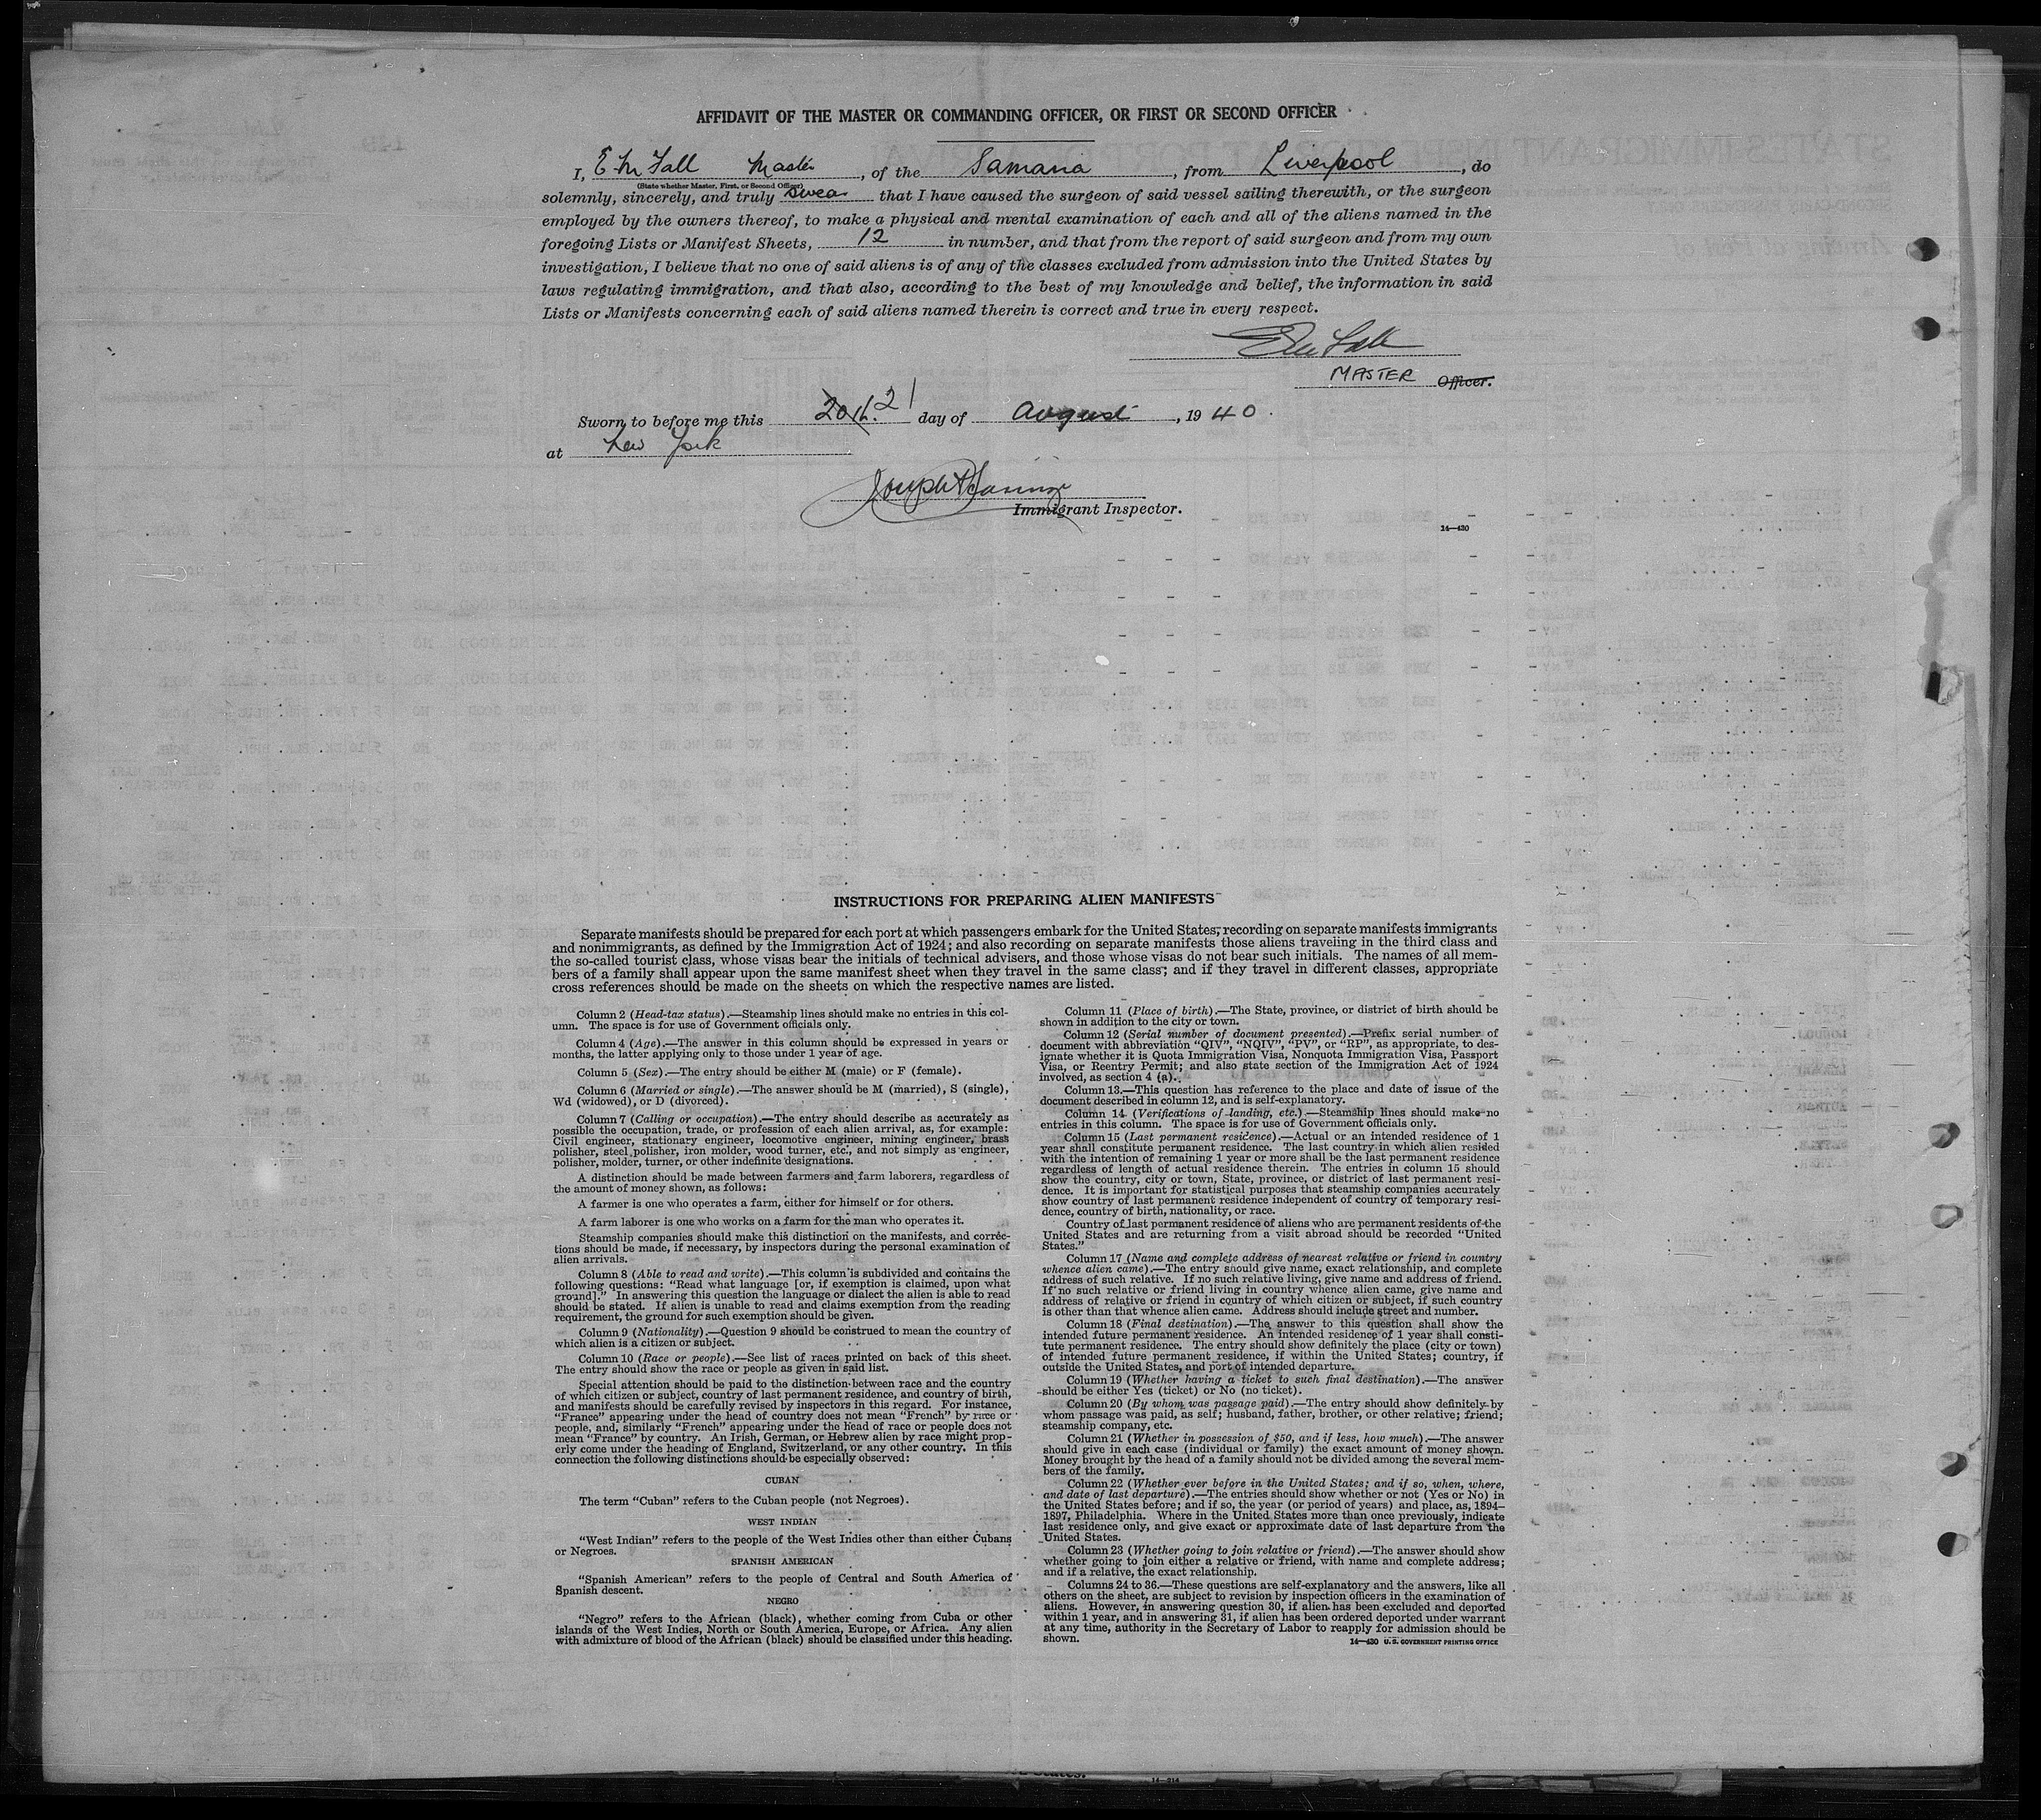 AFFIDAVIT OF THE MASTER OR COMMANDING OFFICER, OR FIRST OR SECOND OFFICER
I, E M Fall Master, of the Samaria, from Liverpool, do
(State whether Master, First, or Second Officer)
solemnly, sincerely, and truly swear that I have caused the surgeon of said vessel sailing therewith, or the surgeon
employed by the owners thereof, to make a physical and mental examination of each and all of the aliens named in the
foregoing Lists or Manifest Sheets, 12 in number, and that from the report of said surgeon and from my own
investigation, I believe that no one of said aliens is of any of the classes excluded from admission into the United States by
laws regulating immigration, and that also, according to the best of my knowledge and belief, the information in said
Lists or Manifests concerning each of said aliens named therein is correct and true in every respect.
MASTER Officer.
Sworn to before me this 20th. 21 day of August, 1940.
at New York
Immigrant Inspector.
14—430
INSTRUCTIONS FOR PREPARING ALIEN MANIFESTS
Separate manifests should be prepared for each port at which passengers embark for the United States, recording on separate manifests immigrants
and nonimmigrants, as defined by the Immigration Act of 1924; and also recording on separate manifests those aliens traveling in the third class and
the so-called tourist class, whose visas bear the initials of technical advisers, and those whose visas do not bear such initials. The names of all mem-
bers of a family shall appear upon the same manifest sheet when they travel in the same class; and if they travel in different classes, appropriate
cross references should be made on the sheets on which the respective names are listed.
Column 2 (Head-tax status).—Steamship lines should make no entries in this col-
umn. The space is for use of Government officials only.
Column 4 (Age).—The answer in this column should be expressed in years or
months, the latter applying only to those under 1 year of age.
Column 5 (Sex).—The entry should be either M (male) or F (female).
Column 6 (Married or single).—The answer should be M (married), S (single),
Wd (widowed), or D (divorced).
Column 7 (Calling or occupation).—The entry should describe as accurately as
possible the occupation, trade, or profession of each alien arrival, as, for example:
Civil engineer, stationary engineer, locomotive engineer, mining engineer, brass
polisher, steel polisher, iron molder, wood turner, etc., and not simply as engineer,
polisher, molder, turner, or other indefinite designations.
A distinction should be made between farmers and farm laborers, regardless of
the amount of money shown, as follows:
A farmer is one who operates a farm, either for himself or for others.
A farm laborer is one who works on a farm for the man who operates it.
Steamship companies should make this distinction on the manifests, and correc-
tions should be made, if necessary, by inspectors during the personal examination of
alien arrivals.
Column 8 (Able to read and write).—This column is subdivided and contains the
following questions: "Read what language [or, if exemption is claimed, upon what
ground]." In answering this question the language or dialect the alien is able to read
should be stated. If alien is unable to read and claims exemption from the reading
requirement, the ground for such exemption should be given.
Column 9 (Nationality).—Question 9 should be construed to mean the country of
which alien is a citizen or subject.
Column 10 (Race or people).—See list of races printed on back of this sheet.
The entry should show the race or people as given in said list.
Special attention should be paid to the distinction between race and the country
of which citizen or subject, country of last permanent residence, and country of birth,
and manifests should be carefully revised by inspectors in this regard. For instance,
"France" appearing under the head of country does not mean "French" by race or
people, and, similarly "French" appearing under the head of race or people does not
mean "France" by country. An Irish, German, or Hebrew alien by race might prop-
erly come under the heading of England, Switzerland, or any other country. In this
connection the following distinctions should be especially observed:
CUBAN
The term "Cuban" refers to the Cuban people (not Negroes).
WEST INDIAN
"West Indian" refers to the people of the West Indies other than either Cubans
or Negroes.
SPANISH AMERICAN
"Spanish American" refers to the people of Central and South America of
Spanish descent.
NEGRO
"Negro" refers to the African (black), whether coming from Cuba or other
islands of the West Indies, North or South America, Europe, or Africa. Any alien
with admixture of blood of the African (black) should be classified under this heading.
Column 11 (Place of birth).—The State, province, or district of birth should be
shown in addition to the city or town.
Column 12 (Serial number of document presented).—Prefix serial number of
document with abbreviation "QIV", "NQIV", "PV", or "RP", as appropriate, to des-
ignate whether it is Quota Immigration Visa, Nonquota Immigration Visa, Passport
Visa, or Reentry Permit; and also state section of the Immigration Act of 1924
involved, as section 4 (a).
Column 13.—This question has reference to the place and date of issue of the
document described in column 12, and is self-explanatory.
Column 14 (Verifications of landing, etc.).—Steamship lines should make no
entries in this column. The space is for use of Government officials only.
Column 15 (Last permanent residence).—Actual or an intended residence of 1
year shall constitute permanent residence. The last country in which alien resided
with the intention of remaining 1 year or more shall be the last permanent residence
regardless of length of actual residence therein. The entries in column 15 should
show the country, city or town, State, province, or district of last permanent resi-
dence. It is important for statistical purposes that steamship companies accurately
show country of last permanent residence independent of country of temporary resi-
dence, country of birth, nationality, or race.
Country of last permanent residence of aliens who are permanent residents of the
United States and are returning from a visit abroad should be recorded "United
States."
Column 17 (Name and complete address of nearest relative or friend in country
whence alien came).—The entry should give name, exact relationship, and complete
address of such relative. If no such relative living, give name and address of friend.
If no such relative or friend living in country whence alien came, give name and
address of relative or friend in country of which citizen or subject, if such country
is other than that whence alien came. Address should include street and number.
Column 18 (Final destination).—The answer to this question shall show the
intended future permanent residence. An intended residence of 1 year shall consti-
tute permanent residence. The entry should show definitely the place (city or town)
of intended future permanent residence, if within the United States; country, if
outside the United States, and port of intended departure.
Column 19 (Whether having a ticket to such final destination).—The answer
should be either Yes (ticket) or No (no ticket).
Column 20 (By whom was passage paid).—The entry should show definitely by
whom passage was paid, as self; husband, father, brother, or other relative; friend;
steamship company, etc.
Column 21 (Whether in possession of $50, and if less, how much).—The answer
should give in each case (individual or family) the exact amount of money shown.
Money brought by the head of a family should not be divided among the several mem-
bers of the family.
Column 22 (Whether ever before in the United States; and if so, when, where,
and date of last departure).—The entries should show whether or not (Yes or No) in
the United States before; and if so, the year (or period of years) and place, as, 1894–
1897, Philadelphia. Where in the United States more than once previously, indicate
last residence only, and give exact or approximate date of last departure from the
United States.
Column 23 (Whether going to join relative or friend).—The answer should show
whether going to join either a relative or friend, with name and complete address;
and if a relative, the exact relationship.
Columns 24 to 36.—These questions are self-explanatory and the answers, like all
others on the sheet, are subject to revision by inspection officers in the examination of
aliens. However, in answering question 30, if alien has been excluded and deported
within 1 year, and in answering 31, if alien has been ordered deported under warrant
at any time, authority in the Secretary of Labor to reapply for admission should be
shown.
14—430 U.S. GOVERNMENT PRINTING OFFICE